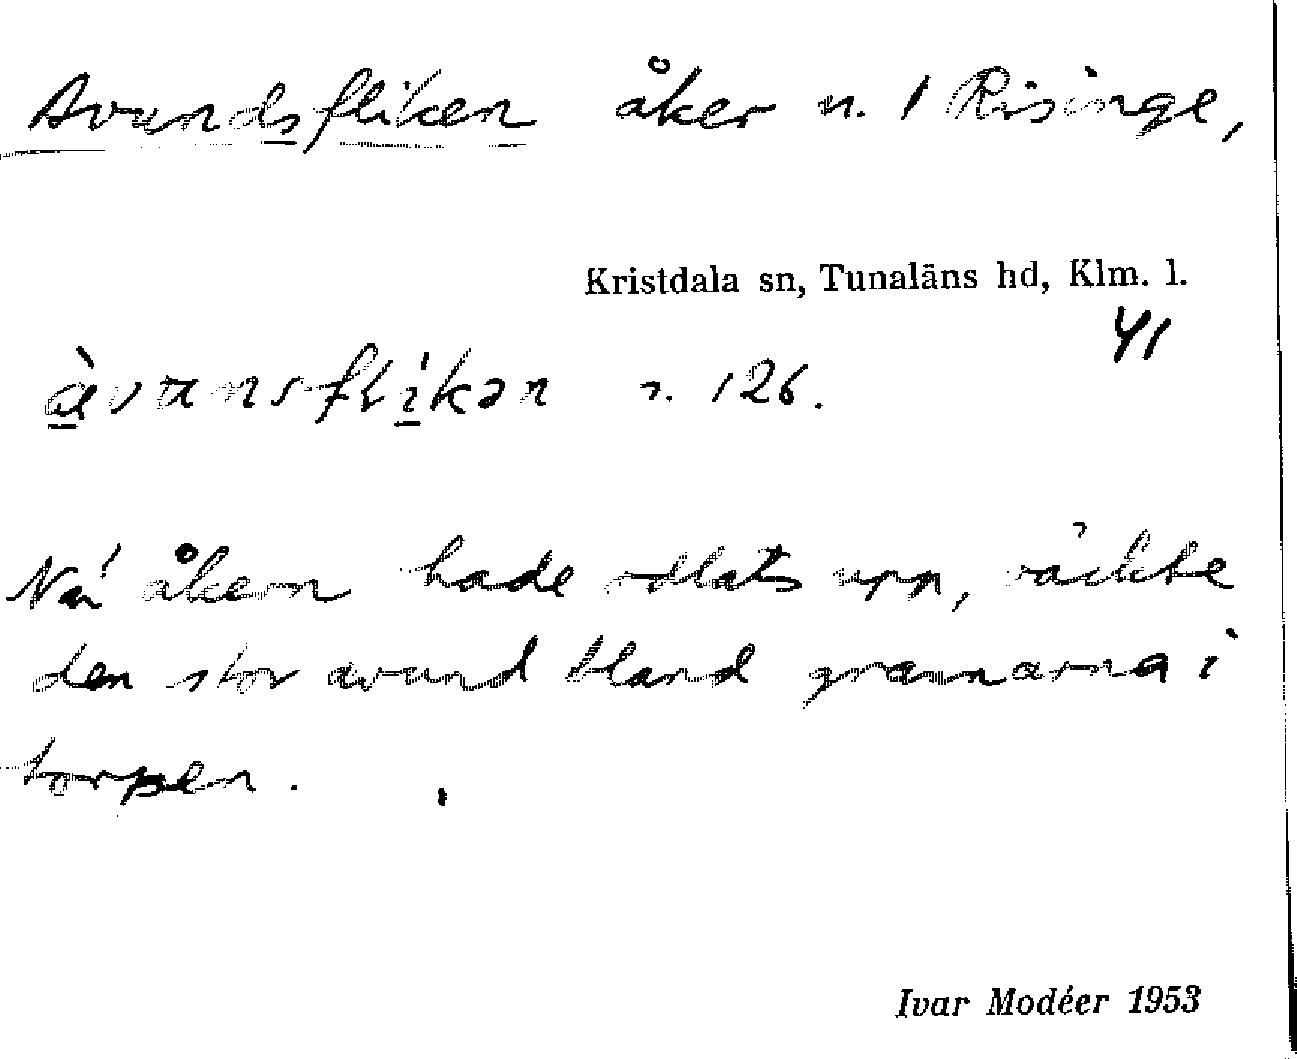 Avundsfliken åker n. 1 Risinge,
Kristdala sn, Tunaläns hd, Klm. l.
41
àvansflíkən n. 126.
När åkern hade odlats upp, väckte
den stor avund bland grannarna i
torpen.
Ivar Modéer 1953